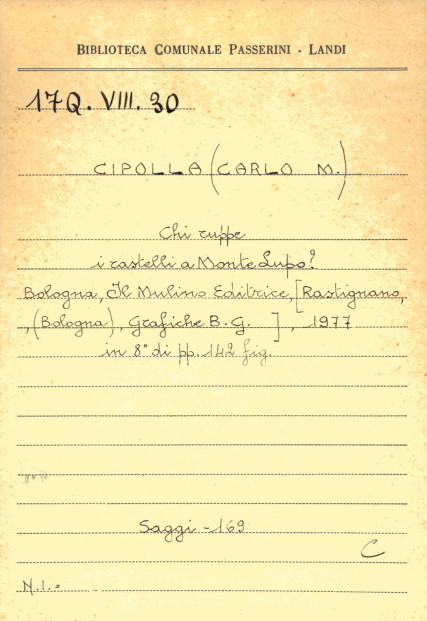 BIBLIOTECA COMUNALE PASSERINI - LANDI
17Q. VIII. 30
CIPOLLA (CARLO M.)
Chi ruppe
i rastelli a Monte Lupo?
Bologna, Il Mulino Editrice, [Rastignano,
, (Bologna), Grafiche B. G. ], 1977
in 8° di pp. 142 fig.
Saggi - 169
C
N.I.=